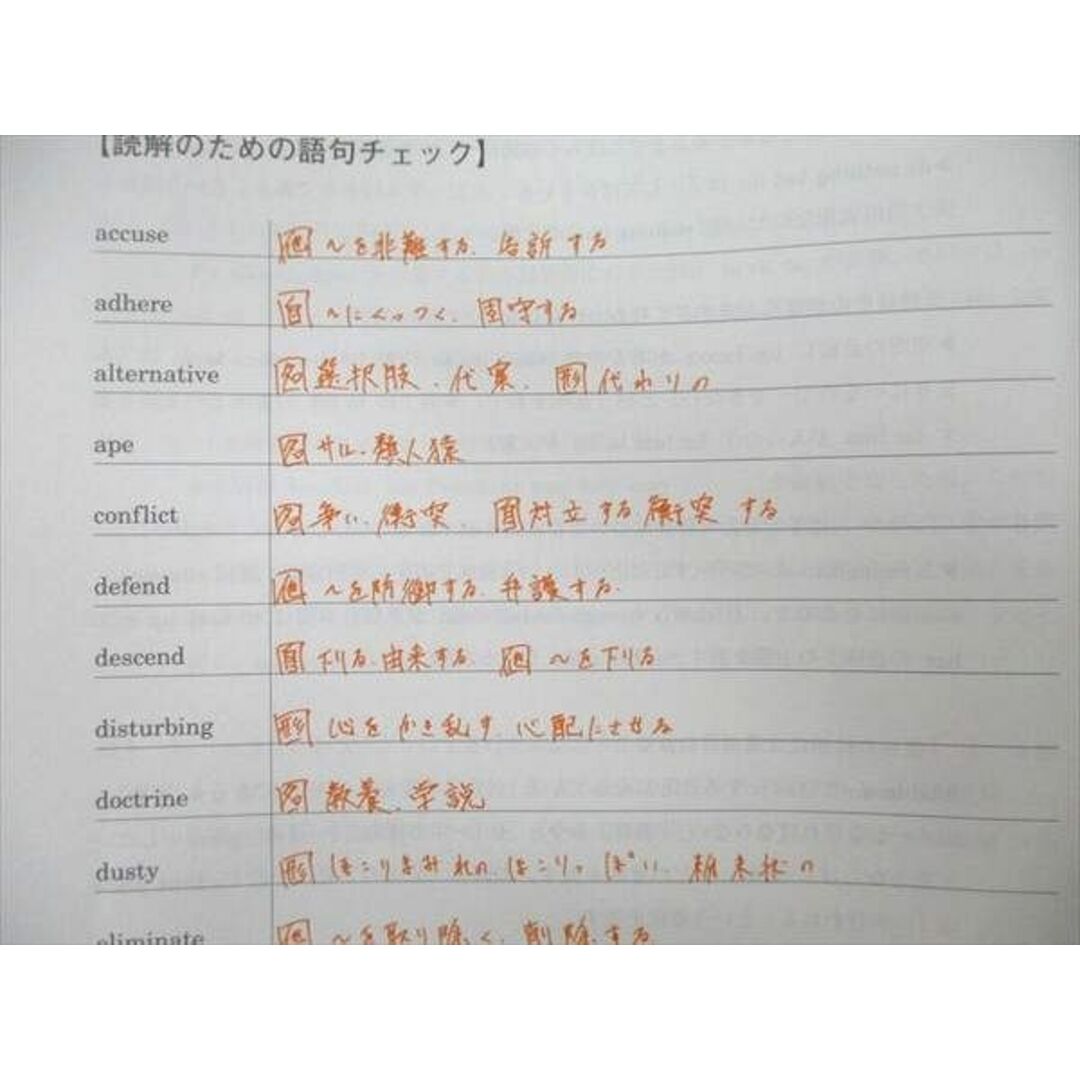 【読解のための語句チェック】
accuse 他 〜を非難する、告訴する
adhere 自 〜にくっつく、固守する
alternative 名 選択肢、代案、形 代わりの
ape 名 サル、類人猿
conflict 名 争い、衝突、自 対立する 衝突する
defend 他 〜を防御する、弁護する
descend 自 下りる、由来する、他 〜を下りる
disturbing 形 心をかき乱す、心配にさせる
doctrine 名 教義、学説
dusty 形 ほこりまみれの、ほこりっぽい、粉末状の
eliminate 他 〜を取り除く、削除する